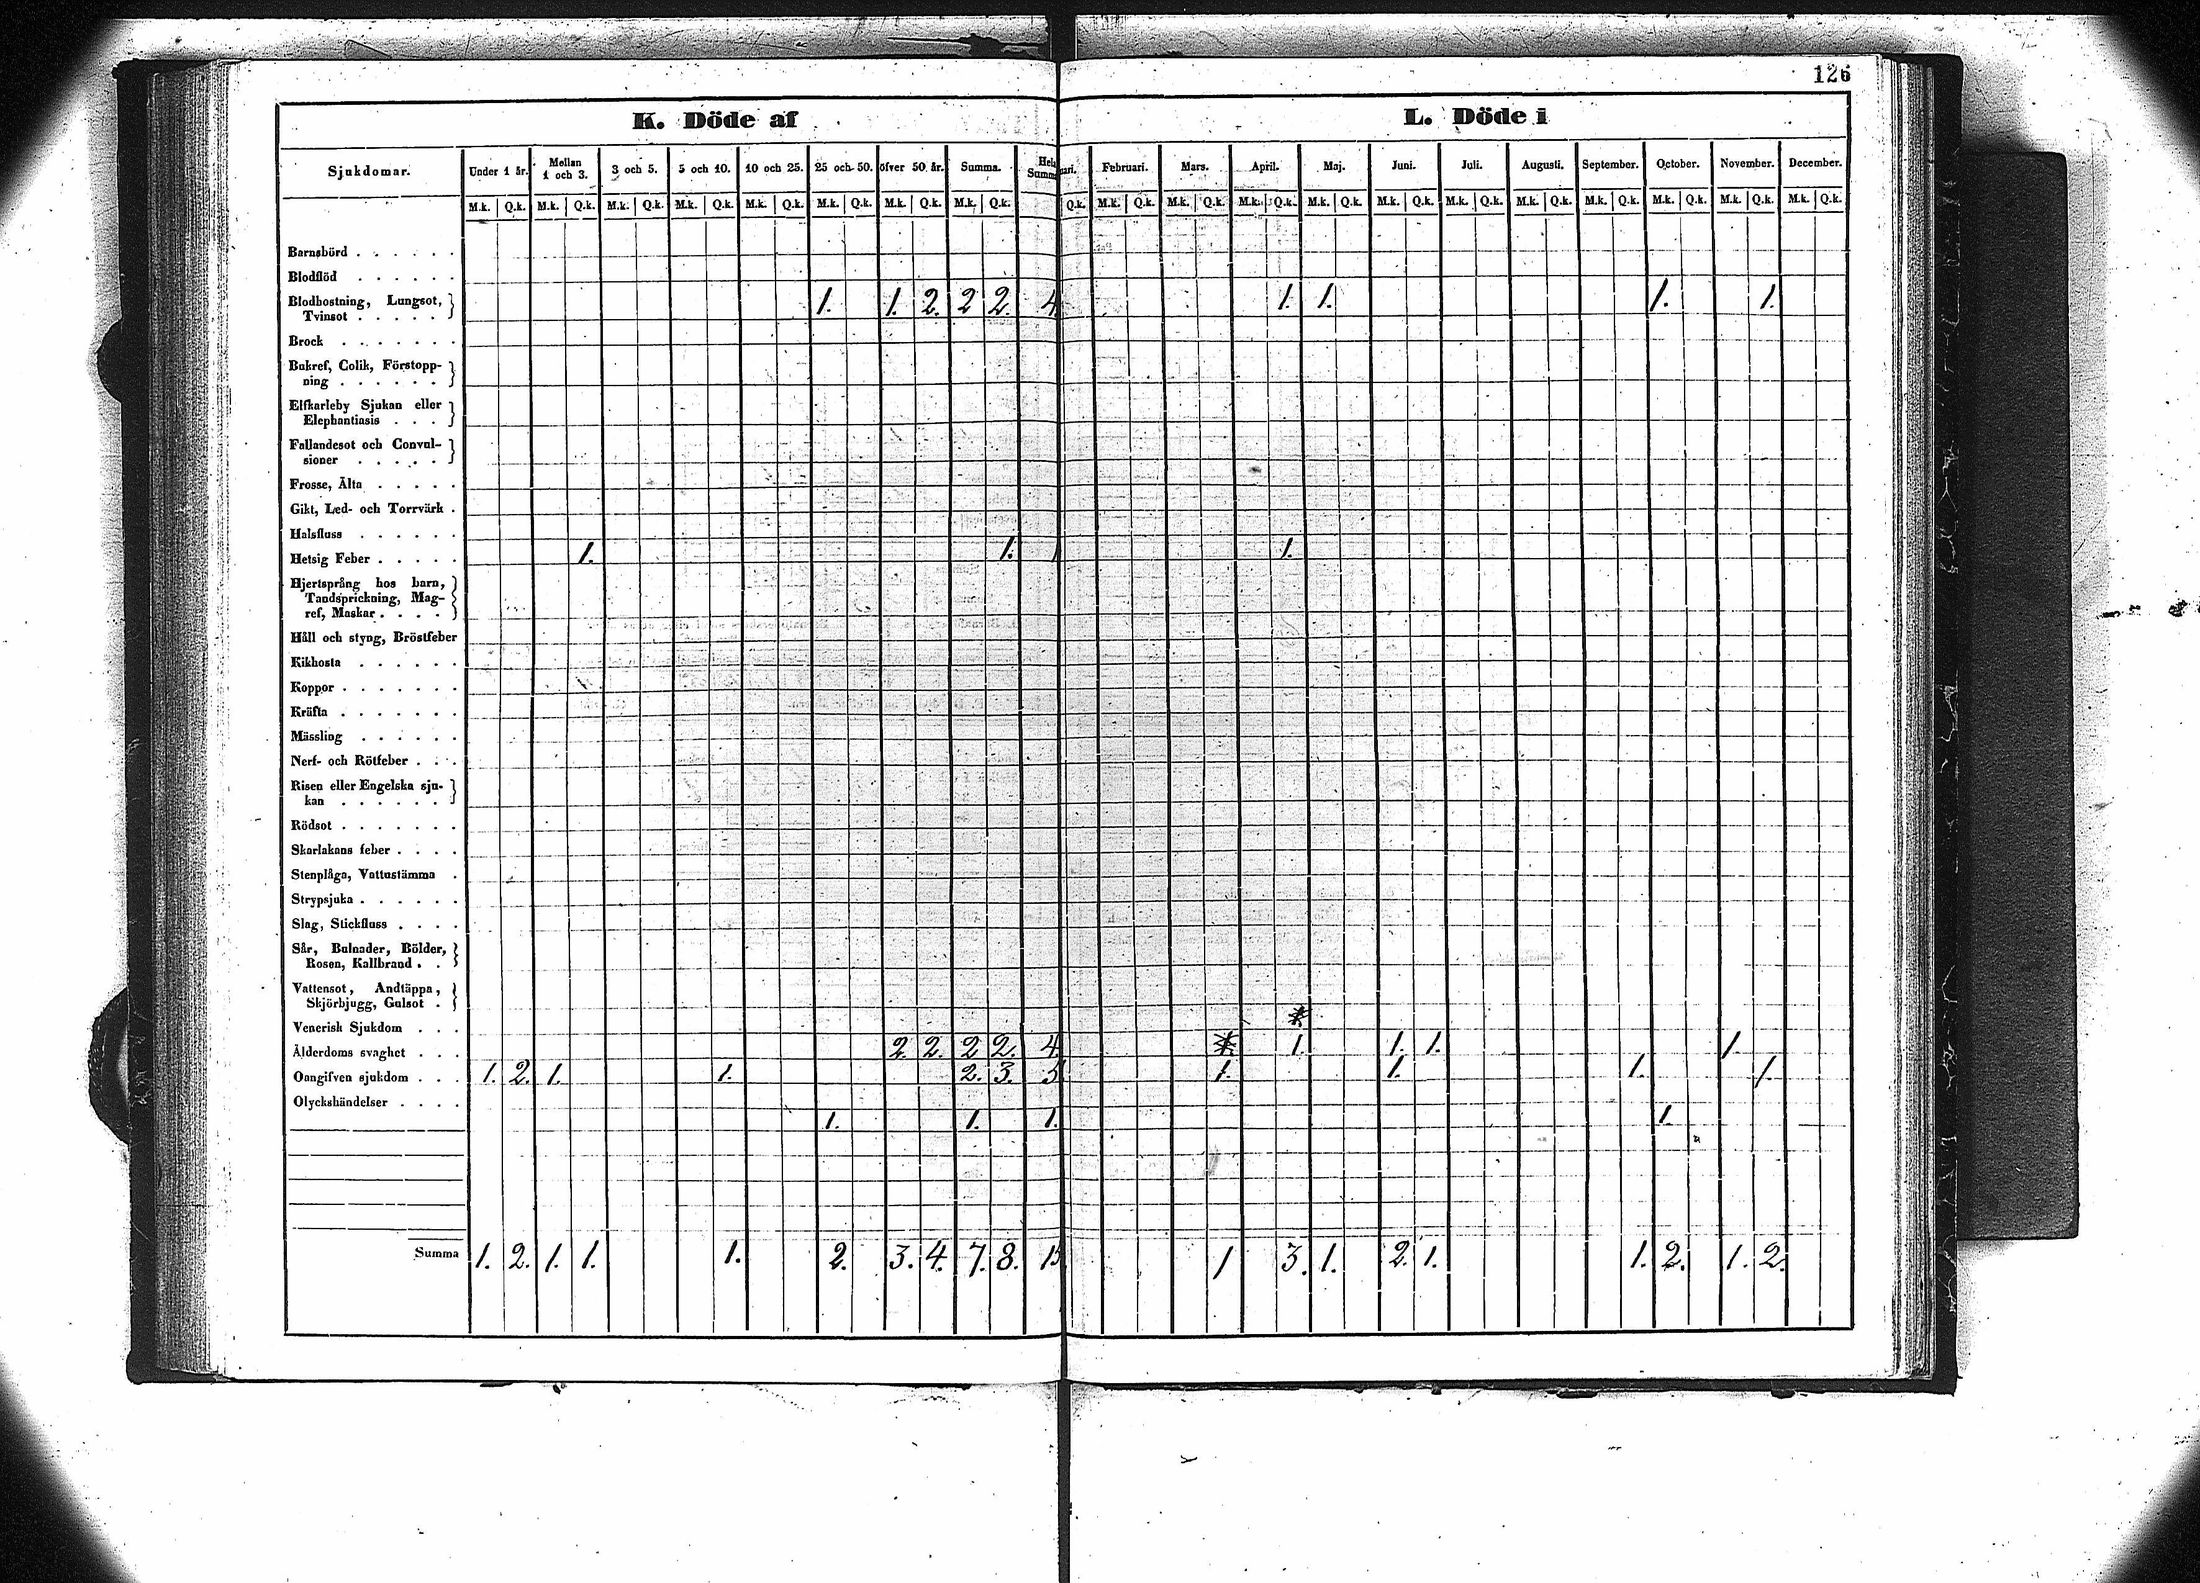 126
K. Döde af
L. Döde i
Sjukdomar. Under 1 år. Mellan 1 och 3. 3 och 5. 5 och 10. 10 och 25. 25 och 50. öfver 50 år. Summa. Hela Summa Februari. Mars. April. Maj. Juni. Juli. Augusti. September. October. November. December.
M.k. Q.k. M.k. Q.k. M.k. Q.k. M.k. Q.k. M.k. Q.k. M.k. Q.k. M.k. Q.k. M.k. Q.k. Q.k. M.k. Q.k. M.k. Q.k. M.k. Q.k. M.k. Q.k. M.k. Q.k. M.k. Q.k. M.k. Q.k. M.k. Q.k. M.k. Q.k. M.k. Q.k. M.k. Q.k.
Barnsbörd . . . . . .
Blodflöd . . . . . .
Blodhostning, Lungsot,
Tvinsot . . . . . 1. 1. 2. 2 2. 4. 1. 1. 1. 1.
Brock . . . . . . .
Bukref, Colik, Förstopp-
ning . . . . . .
Elfkarleby Sjukan eller
Elephantiasis . . .
Fallandesot och Convul-
sioner . . . . .
Frosse, Älta . . . . .
Gikt, Led- och Torrvärk .
Halsfluss . . . . . .
Hetsig Feber . . . . . 1. 1. 1 1.
Hjertsprång hos barn,
Tandsprickning, Mag-
ref, Maskar . . . .
Håll och styng, Bröstfeber
Kikhosta . . . . . .
Koppor . . . . . . .
Kräfta . . . . . . .
Mässling . . . . . .
Nerf- och Rötfeber . . .
Risen eller Engelska sju-
kan . . . . . .
Rödsot . . . . . . .
Skarlakans feber . . . .
Stenplåga, Vattustämma .
Strypsjuka . . . . . .
Slag, Stickfluss . . . .
Sår, Bulnader, Bölder,
Rosen, Kallbrand . .
Vattensot, Andtäppa,
Skjörbjugg, Gulsot .
Venerisk Sjukdom . . .
Ålderdoms svaghet . . . 2. 2. 2 2. 4. 1. 1. 1. 1.
Oangifven sjukdom . . . 1. 2. 1. 1. 2. 3. 5. 1. 1. 1. 1.
Olyckshändelser . . . .
1. 1. 1. 1.
Summa 1. 2. 1. 1. 1. 2. 3. 4. 7. 8. 15 1 3. 1. 2. 1. 1. 2. 1. 2.